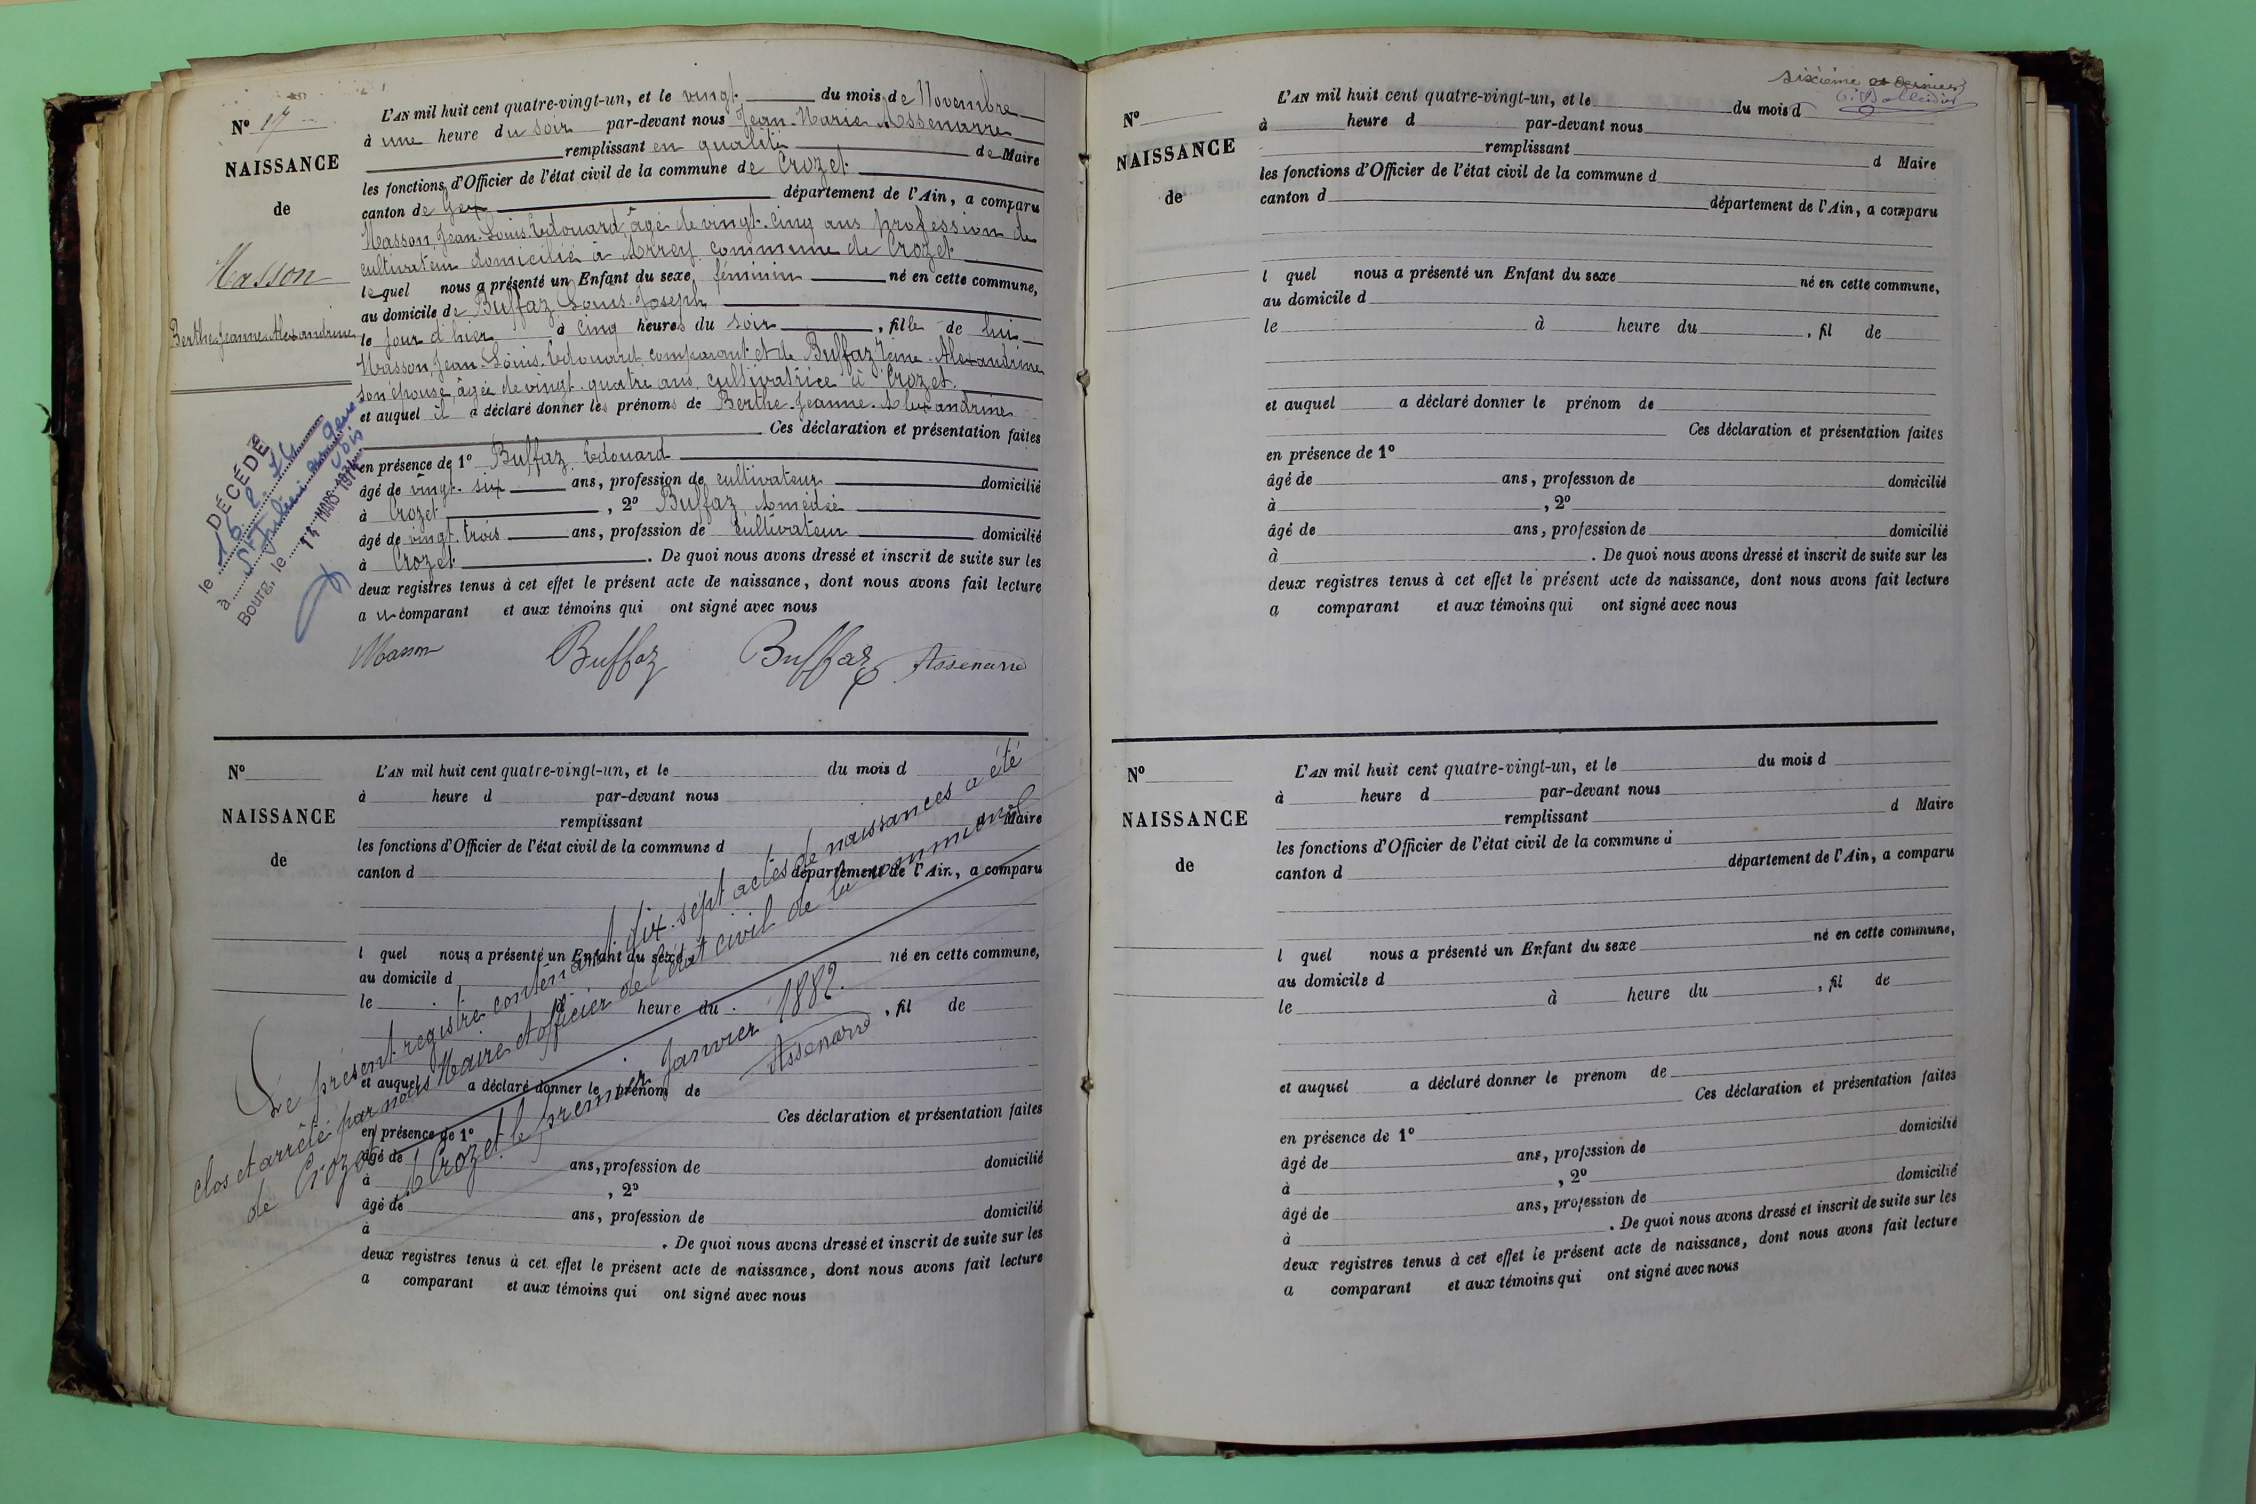 N° 17
NAISSANCE
de
Masson
Berthe Jeanne Alexandrine
L'AN mil huit cent quatre-vingt-un, et le vingt du mois de Novembre
à une heure du soir par-devant nous Jean-Marie Assenarre
remplissant en qualité de Maire
les fonctions d'Officier de l'état civil de la commune de Crozet
canton de Gex département de l'Ain, a comparu
Masson Jean-Louis-Edouard, âgé de vingt-cinq ans profession de
cultivateur domicilié à Avrey commune de Crozet
lequel nous a présenté un Enfant du sexe féminin né en cette commune,
au domicile de Buffaz Louis-Joseph
le jour d'hier à cinq heures du soir, fille de lui
Masson Jean-Louis-Edouard comparant et de Buffaz Alexandrine
son épouse âgée de vingt-quatre ans, cultivatrice à Crozet.
et auquel il a déclaré donner les prénoms de Berthe-Jeanne-Alexandrine
Ces déclaration et présentation faites
en présence de 1° Buffaz Edouard
âgé de vingt-six ans, profession de cultivateur domicilié
à Crozet, 2° Buffaz Amédée
âgé de vingt-trois ans, profession de cultivateur domicilié
à Crozet. De quoi nous avons dressé et inscrit de suite sur les
deux registres tenus à cet effet le présent acte de naissance, dont nous avons fait lecture
a u comparant et aux témoins qui ont signé avec nous
Masson Buffaz Buffaz Assenarre
DÉCÉDÉE
le 16.2.74
à St Julien en Genevois
Bourg, le 14 MARS 1974
N°
NAISSANCE
de
L'AN mil huit cent quatre-vingt-un, et le du mois d
à heure d par-devant nous
remplissant d Maire
les fonctions d'Officier de l'état civil de la commune d
canton d département de l'Ain, a comparu
l quel nous a présenté un Enfant du sexe né en cette commune,
au domicile d
le à heure du, fil de
et auquel a déclaré donner le prénom de
Ces déclaration et présentation faites
en présence de 1°
âgé de ans, profession de domicilié
à, 2°
âgé de ans, profession de domicilié
à. De quoi nous avons dressé et inscrit de suite sur les
deux registres tenus à cet effet le présent acte de naissance, dont nous avons fait lecture
a comparant et aux témoins qui ont signé avec nous
Le présent registre contenant dix-sept actes de naissances a été
clos et arrêté par nous Maire et officier de l'état civil de la commune
de Crozet
A Crozet le premier Janvier 1882.
Assenarre
sixième et dernier
N°
NAISSANCE
de
L'AN mil huit cent quatre-vingt-un, et le du mois d
à heure d par-devant nous
remplissant d Maire
les fonctions d'Officier de l'état civil de la commune d
canton d département de l'Ain, a comparu
l quel nous a présenté un Enfant du sexe né en cette commune,
au domicile d
le à heure du, fil de
et auquel a déclaré donner le prénom de
Ces déclaration et présentation faites
en présence de 1°
âgé de ans, profession de domicilié
à, 2°
âgé de ans, profession de domicilié
à. De quoi nous avons dressé et inscrit de suite sur les
deux registres tenus à cet effet le présent acte de naissance, dont nous avons fait lecture
a comparant et aux témoins qui ont signé avec nous
N°
NAISSANCE
de
L'AN mil huit cent quatre-vingt-un, et le du mois d
à heure d par-devant nous
remplissant d Maire
les fonctions d'Officier de l'état civil de la commune d
canton d département de l'Ain, a comparu
l quel nous a présenté un Enfant du sexe né en cette commune,
au domicile d
le à heure du, fil de
et auquel a déclaré donner le prenom de
Ces déclaration et présentation faites
en présence de 1°
âgé de ans, profession de domicilié
à, 2°
âgé de ans, profession de domicilié
à. De quoi nous avons dressé et inscrit de suite sur les
deux registres tenus à cet effet le présent acte de naissance, dont nous avons fait lecture
a comparant et aux témoins qui ont signé avec nous